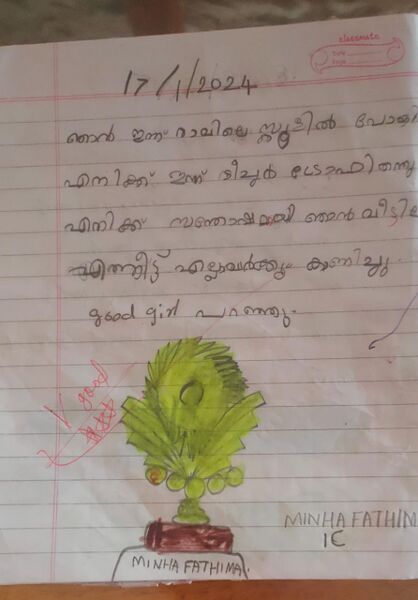 classmate
Date
Page
17/1/2024
ഞാൻ ഇന്ന് രാവിലെ സ്കൂളിൽ പോയി
എനിക്ക് ഇന്ന് ടീച്ചർ ട്രോഫി തന്നു
എനിക്ക് സന്തോഷമായി ഞാൻ വീട്ടിൽ
എന്നിട്ട് എല്ലാവർക്കും കാണിച്ചു.
good girl പറഞ്ഞു.
good
MINHA FATHIM
1C
MINHA FATHIMA